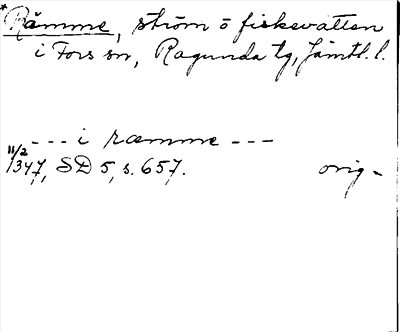 *Rämme, ström o fiskevatten
i Fors sn, Ragunda tg, Jämtl. l.
--- i ræmme ---
11/2
1347, SD 5, s. 657. orig-